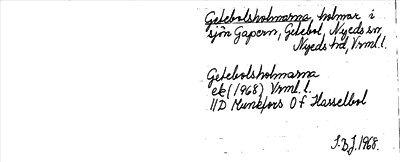 Getebolsholmarna, holmar i
sjön Gapern, Getebol, Nyeds sn,
Nyeds hd, Vrml.l.
Getebolsholmarna
ek (1968) Vrml.l.
11D Munkfors 0f Hasselbol
S.B.J. 1968.